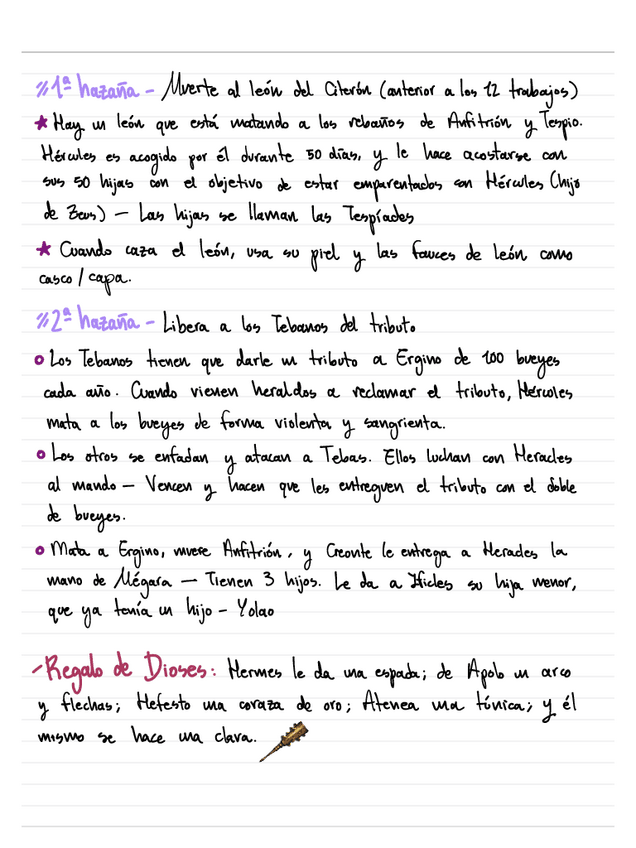 1ª hazaña - Muerte al león del Citerón (anterior a los 12 trabajos)
★ Hay un león que está matando a los rebaños de Anfitrión y Tespio.
Hércules es acogido por él durante 50 días, y le hace acostarse con
sus 50 hijas con el objetivo de estar emparentados con Hércules (hijo
de Zeus) — Las hijas se llaman las Tespíades
★ Cuando caza el león, usa su piel y las fauces de león como
casco / capa.
2ª hazaña - Libera a los Tebanos del tributo.
Los Tebanos tienen que darle un tributo a Ergino de 100 bueyes
cada año. Cuando vienen heraldos a reclamar el tributo, Hércoles
mata a los bueyes de forma violenta y sangrienta.
Los otros se enfadan y atacan a Tebas. Ellos luchan con Heracles
al mando — Vencen y hacen que les entreguen el tributo con el doble
de bueyes.
Mata a Ergino, muere Anfitrión, y Creonte le entrega a Heracles la
mano de Mégara — Tienen 3 hijos. Le da a Ificles su hija menor,
que ya tenía un hijo - Yolao
-Regalo de Dioses: Hermes le da una espada; de Apolo un arco
y flechas; Hefesto una coraza de oro; Atenea una túnica; y él
mismo se hace una clava.